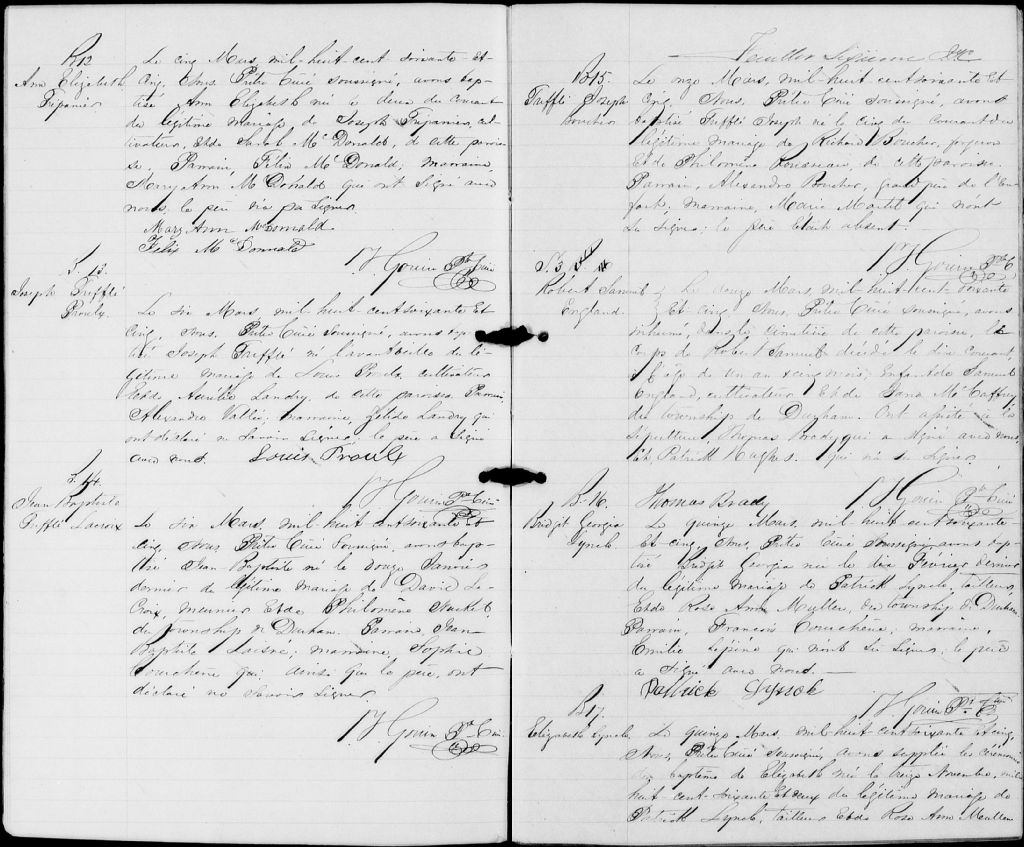 B.12
Ann Elizabeth
Tripanier
Le cinq Mars, mil-huit cent soixante-et-
cinq, Nous, Prêtre Curé Soussigné, avons bap-
tisé Ann Elizabeth né le deux du courant
du légitime mariage de Joseph Tripanier, cul-
tivateur, et de Sarah McDonald, de cette parois-
se, Parrain, Félix McDonald; marraine,
Mary Ann McDonald qui ont signé avec
nous; le père n'a pu signer.
Mary Ann McDonnald
Félix McDonnald
Gouin Ptre Curé
B. 13.
Joseph Trifflé
Proulx
Le six Mars, mil-huit centsoixante et
cinq, Nous, Prêtre Curé Soussigné, avons bap-
tisé Joseph Trifflé né l'avantveille du lé-
gitime mariage de Louis Proulx cultivateur
et de Aurélie Landry, de cette paroisse. Parrain
Alexandre Vallée; marraine, Zelida Landry qui
ont déclaré ne savoir signer, le père a signé
avec nous. Louis Proulx
Gouin Ptre Curé
B. 14.
Jean Baptiste
Trifflé Lacroix
Le six Mars, mil huit centsoixante et
cinq, Nous Prêtre Curé Soussigné, avons bap-
tisé Jean-Baptiste né le douze Janvier
dernier du légitime mariage de David La-
croix, meunier et de Philomène
du Township de Durham. Parrain, Jean-
Baptiste marraine, Sophie
Courchène qui, ainsi que le père, ont
déclaré ne savoir signer
Gouin Ptre Curé
Feuillet Sixième
B15.
Trifflé Joseph
Boucher
Le onze Mars, mil huit centsoixante et
cinq, Nous, Prêtre Curé Soussigné, avons
baptisé Trifflé Joseph né le cinq du courant du
légitime mariage de Richard Boucher, forgeron
et de Philomène Rousseau, de cette paroisse.
Parrain, Alexandre Boucher, grand père de l'en-
fant; marraine, Marie Martel qui n'ont
su signer; le père était absent.
Gouin Ptre C
S. 3
Robert Samuel
England.
Le douze Mars, mil huit cent soixante
et cinq, Nous, Prêtre Curé Soussigné, avons
inhumé, dans le cimetière de cette paroisse, le
corps de Robert Samuel décédé le dix courant,
à l'âge de un an et cinq mois; enfant de Samuel
England, cultivateur et de Jana McCaffrey
du township de Durham. Ont assisté à la
sépulture, Thomas Brady qui a signé avec nous,
et Patrick Hughes qui n'a su signer.
Thomas Brady
Gouin Ptre Curé
B. 16.
Bridjit Georgia
Lynch.
Le quinze Mars, mil huit-cent-soixante-
et-cinq, Nous, Prêtre Curé Soussigné avons bap-
tisé Bridjit Georgia née le dix Février dernier
du légitime mariage de Patrick Lynch, tailleur
et de Rose Ann Mullen, du township de Durham
Parrain, Francois Courchène, marraine,
Emilie Lépine qui n'ont su signer; le père
a signé avec nous.
Patrick Lynch
Gouin Ptre Curé
B 17
Elizabeth Lynch
Le quinze Mars, mil huit centsoixante et cinq,
Nous, Prêtre Curé Soussigné, avons supplée les cérémonies
du baptême de Elizabeth née le treize Novembre, mil
huit-cent-soixante et deux du légitime mariage de
Patrick Lynch, tailleur et de Rose Ann Mullen